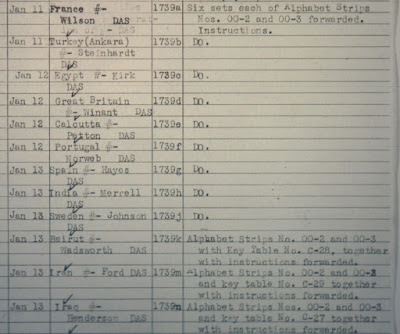 Jan 11 France #- 1739a Six sets each of Alphabet Strips
Wilson DAS Nos. 00-2 and 00-3 forwarded.
Instructions.
Jan 11 Turkey(Ankara) 1739b Do.
#- Steinhardt
DAS
Jan 12 Egypt #- Kirk 1739c Do.
DAS
Jan 12 Great Britain 1739d Do.
#- Winant DAS
Jan 12 Calcutta #- 1739e Do.
Patton DAS
Jan 12 Portugal #- 1739f Do.
Norweb DAS
Jan 13 Spain #- Hayes 1739g Do.
DAS
Jan 13 India #- Merrell 1739h Do.
DAS
Jan 13 Sweden #- Johnson 1739j Do.
DAS
Jan 13 Beirut #- 1739k Alphabet Strips No. 00-2 and 00-3
Wadsworth DAS with Key Table No. C-28, together
with instructions forwarded.
Jan 13 Iran #- Ford DAS 1739m Alphabet Strips Nos. 00-2 and 00-3
and key table No. C-29 together
with instructions forwarded.
Jan 13 Iraq #- 1739n Alphabet Strips Nos. 00-2 and 00-3
Henderson DAS and key table No. C-27 together
with instructions forwarded.